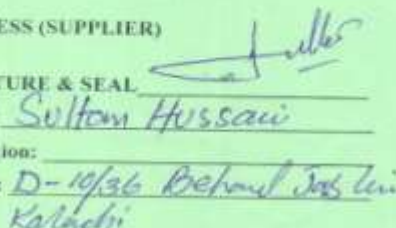 ESS (SUPPLIER)
TURE & SEAL
Sultan Hussain
ion:
: D-10/36 Behand
Karachi